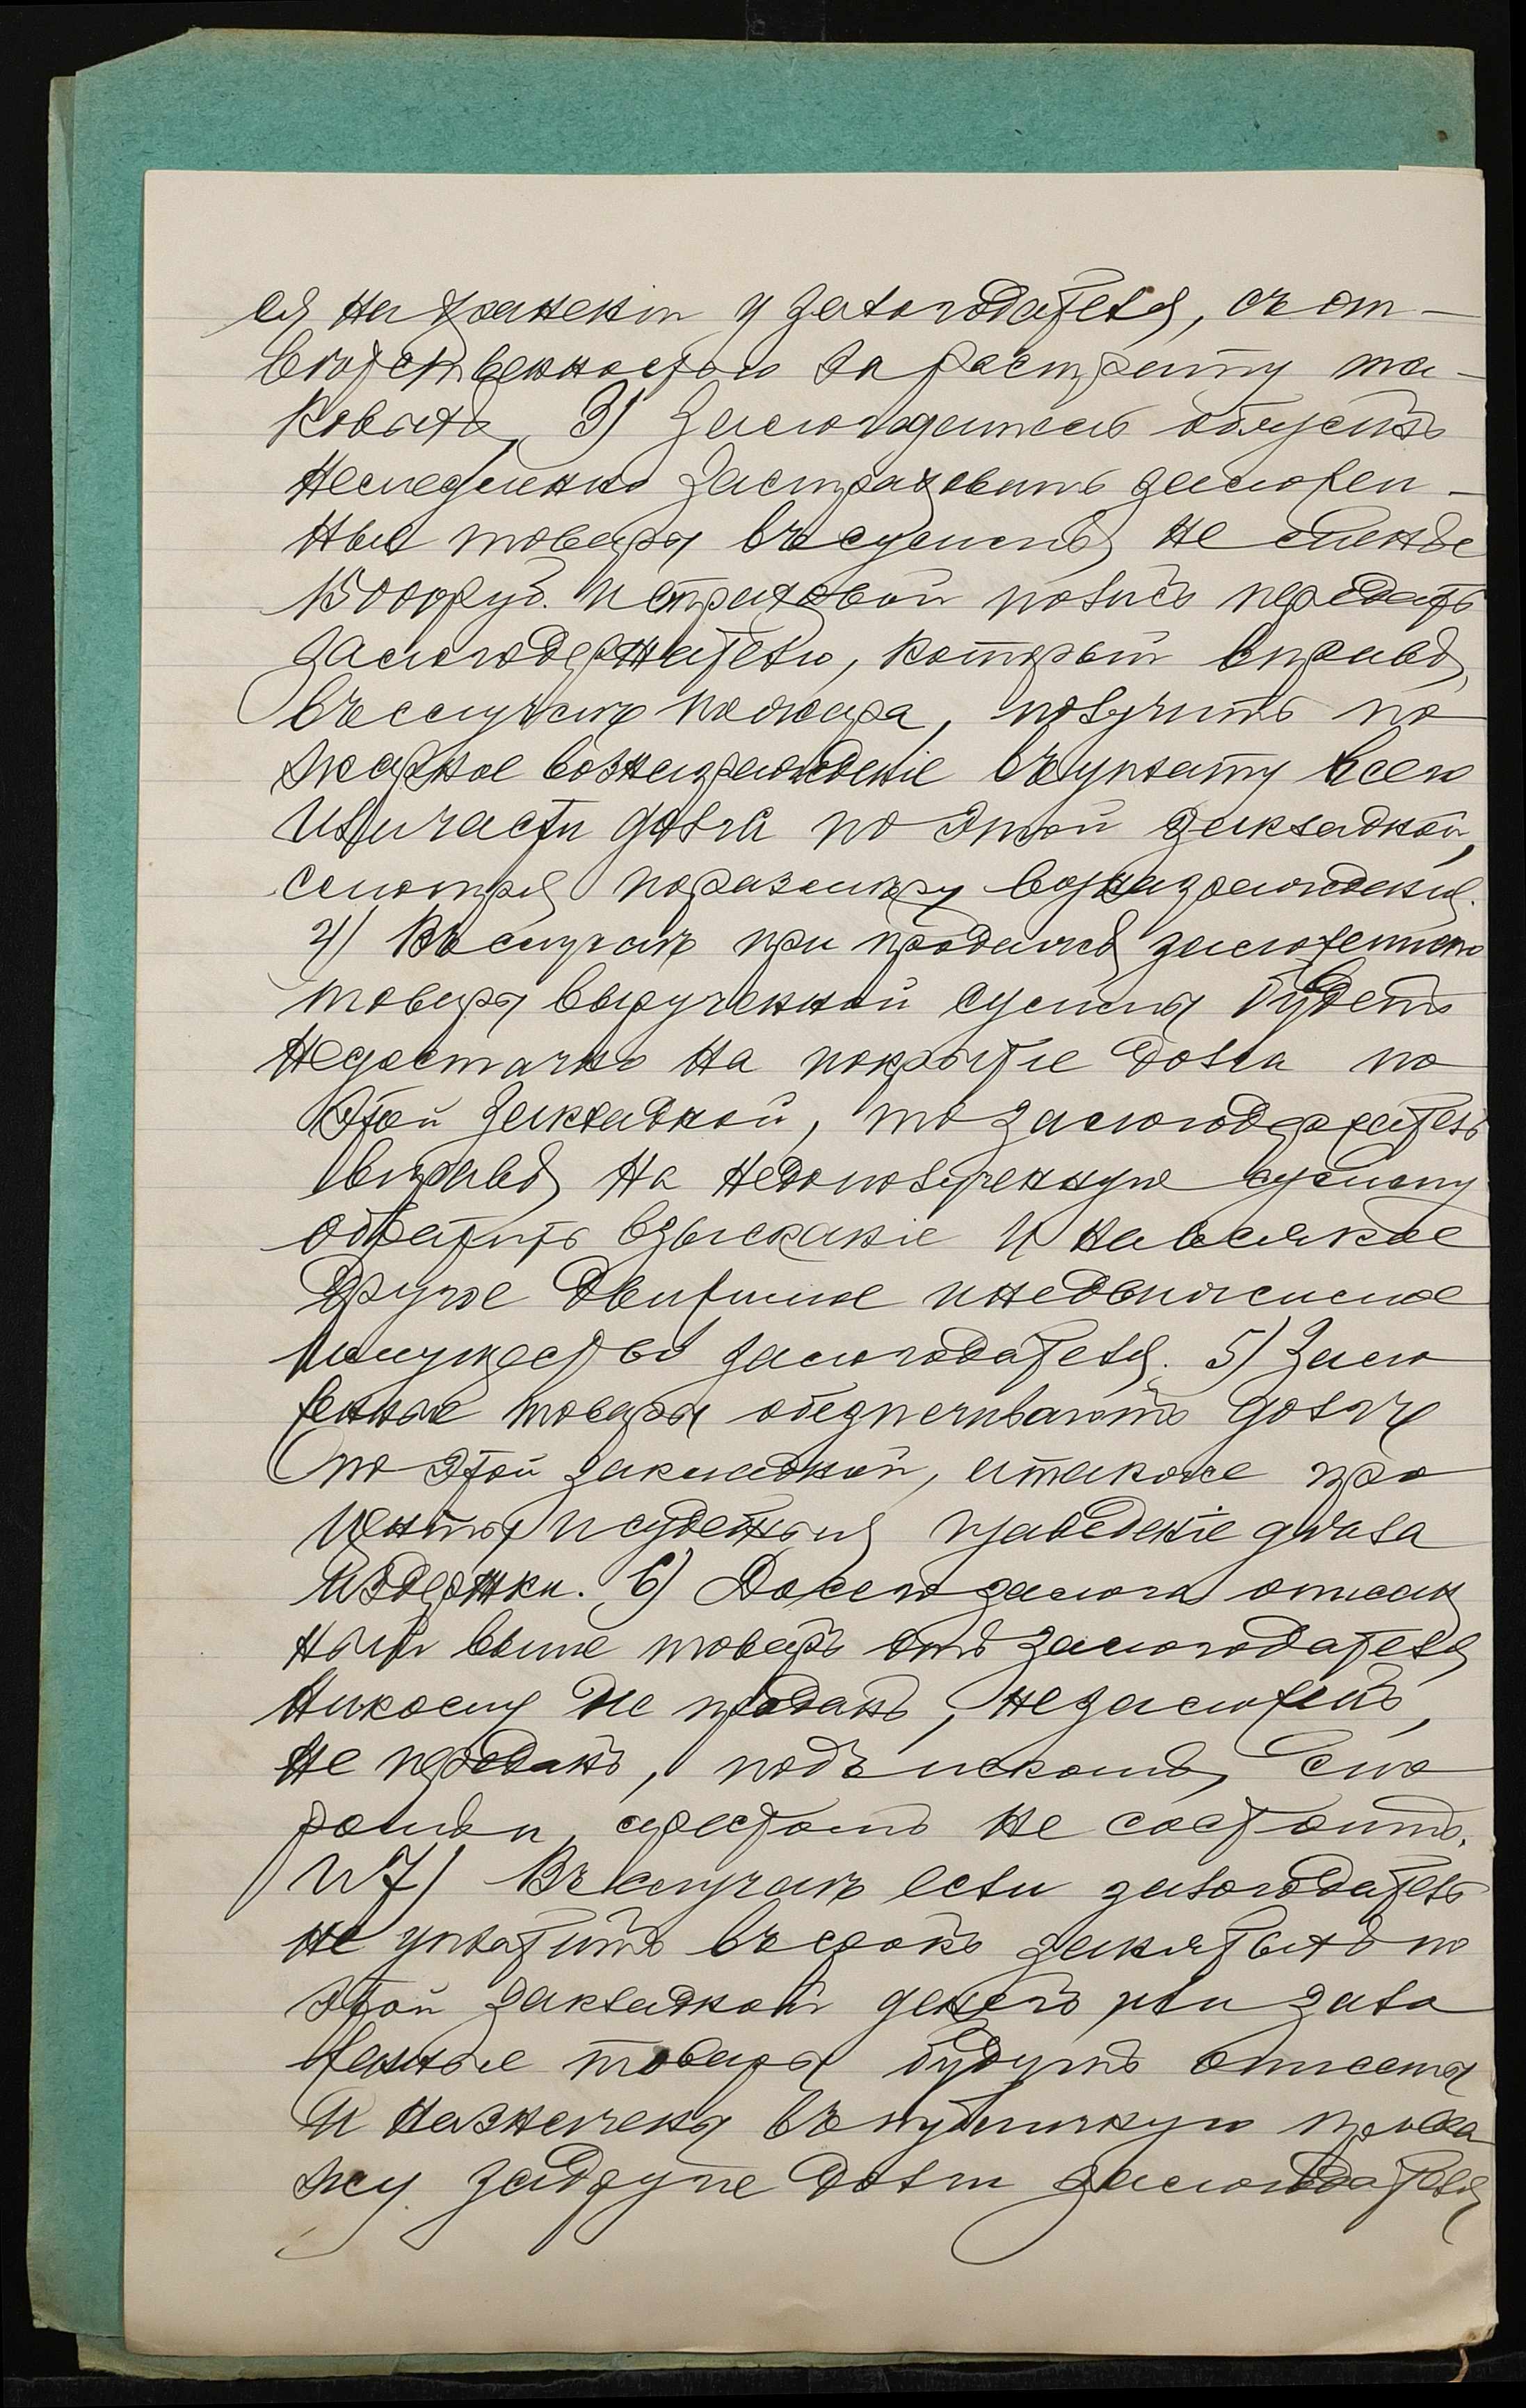 ся на храненiи у залогодателя, съ от-
вѣтственностью за растрату та-
ковыхъ, 3) Залогодатель обязанъ
немедленно застраховать заложен-
ные товары въ суммѣ не менѣе
15000 руб. и страховой полисъ передать
залогодержателю, который вправѣ,
въ случаѣ пожара, получить по
жарное вознагражденiе въ уплату всего
или части долга по этой закладной,
смотря по размѣру вознагражденiя.
4) Въ случаѣ при продажѣ заложеннаго
товара вырученной суммы будетъ
недостачно на покрытiе долга по
этой закладной, то залогодержатель
вправѣ на недополученную сумму
обратить взысканiе и на всякое
другое движимое и недвижимое
имущество залогодателя. 5) Зало
женные товары обезпечиваютъ долгъ
по этой закладной, а также про
центы и судебныя и за веденiе дѣла
издержки. 6) До сего залога описан
ный выше товаръ отъ залогодателя
никому не проданъ, не заложенъ,
не переданъ, подъ искомъ, спо
ромъ и арестомъ не состоитъ.
и 7) Въ случаѣ если залогодатель
не уплатитъ въ срокъ занятыхъ по
этой закладной денегъ или зало
женные товары будутъ описаны
и назначены въ публичную прода
жу за другiе долги залогодателя